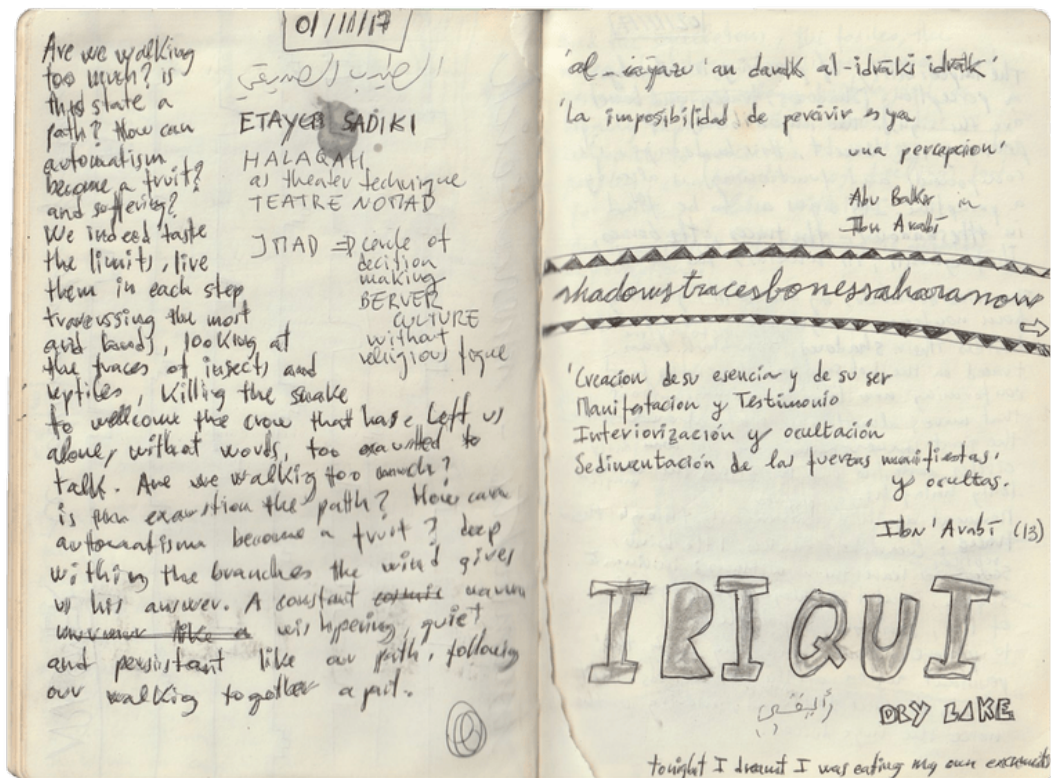 01/11/17
Are we walking
too much? is
this state a
path? How can
automatism
become a fruit?
and suffering?
We indeed taste
the limits, live
them in each step
traverssing the most
arid lands, looking at
the traces of insects and
reptiles, killing the snake
to wellcome the crow that hase left us
alone, without words, too exausted to
talk. Are we walking too much?
is this exaustion the path? How can
automatism become a fruit? deep
withing the branches the wind gives
us his answer. A constant cosmic
murmur like a wishpering, quiet
and persistant like our path, following
our walking together apart.
الطيب الصديقي
ETAYEB SADIKI
HALAQAH
as theater technique
TEATRE NOMAD
JMAD ⇒ circle of
decision
making
BERVER
CULTURE
without
religious
'al-'ayazu 'an darak al-idraki idrak'
'La imposibilidad de percivir es ya
una percepcion'
Abu Bakr in
Ibn Arabi
shadowstracesbonessaharanow
'Creacion de su esencia y de su ser
Manifestacion y Testimonio
Interiorización y ocultación
Sedimentación de las fuerzas manifiestas,
y ocultas.
Ibn 'Arabī (13)
IRIQUI
DRY LAKE
tonight I dreamt I was eating my own excrements